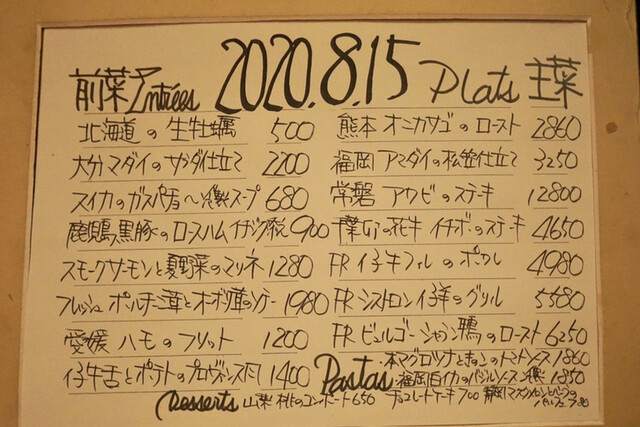 2020.8.15
前菜 Entrées
北海道の生牡蠣 500
大分マダイのサラダ仕立て 2200
スイカのガスパチョ〜冷製スープ 680
鹿児島黒豚のロースハム イチジク添え 900
スモークサーモンと夏野菜のマリネ 1280
フレッシュポルチーニ茸と 1980
愛媛 ハモのフリット 1200
仔牛舌とポテトのプロヴァンス風 1400
Plats 主菜
熊本 オニカサゴのロースト 2860
福岡 アマダイの松笠仕立て 3250
常磐 アワビのステーキ 12800
牛 イチボのステーキ 4650
FR 仔牛フィレのポワレ 4980
FR シストロン仔羊のグリル 5580
FR ビュルゴー シャラン鴨のロースト 6250
Pastas
本マグロツナとキャベツのトマトソース 1860
福岡白イカのバジルソース 冷製 1850
Desserts 山梨 桃のコンポート 650 チョコレートケーキ 700 静岡マスクメロン